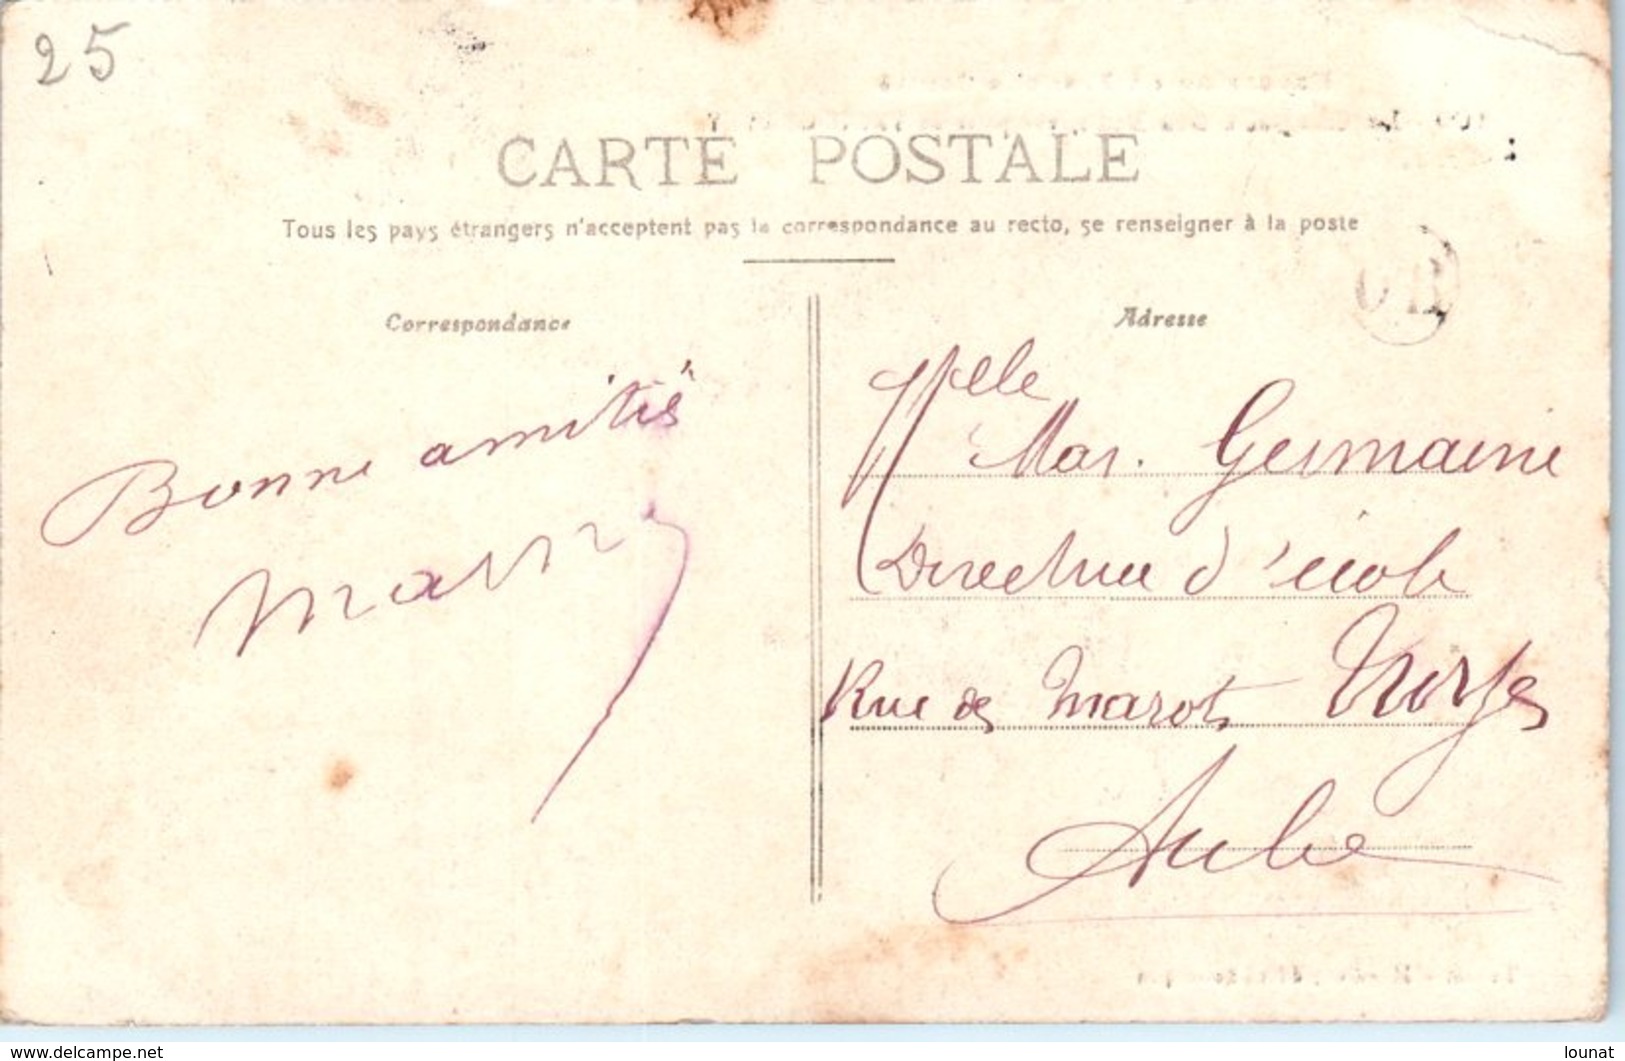 25
CARTE POSTALE
Tous les pays étrangers n'acceptent pas la correspondance au recto, se renseigner à la poste
Correspondance
Adresse
Bonne amitiés
Melle Mas. Germaine
Directrice d'école
Rue de Marots Troyes
Aube
www.delcampe.net
lounat